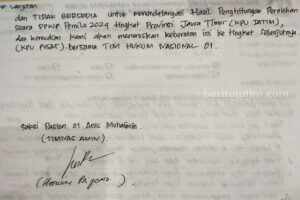 Lanjutan
dan TIDAK BERSEDIA untuk menandatangani Hasil Penghitungan Perolehan
Suara PPWP Pemilu 2024 tingkat Provinsi Jawa Timur (KPU JATIM),
dan kemudian kami akan meneruskan keberatan ini ke tingkat selanjutnya
(KPU PUSAT) bersama TIM HUKUM NASIONAL 01.
Saksi Paslon 01 Anis Muhaimin
(TIMNAS AMIN)